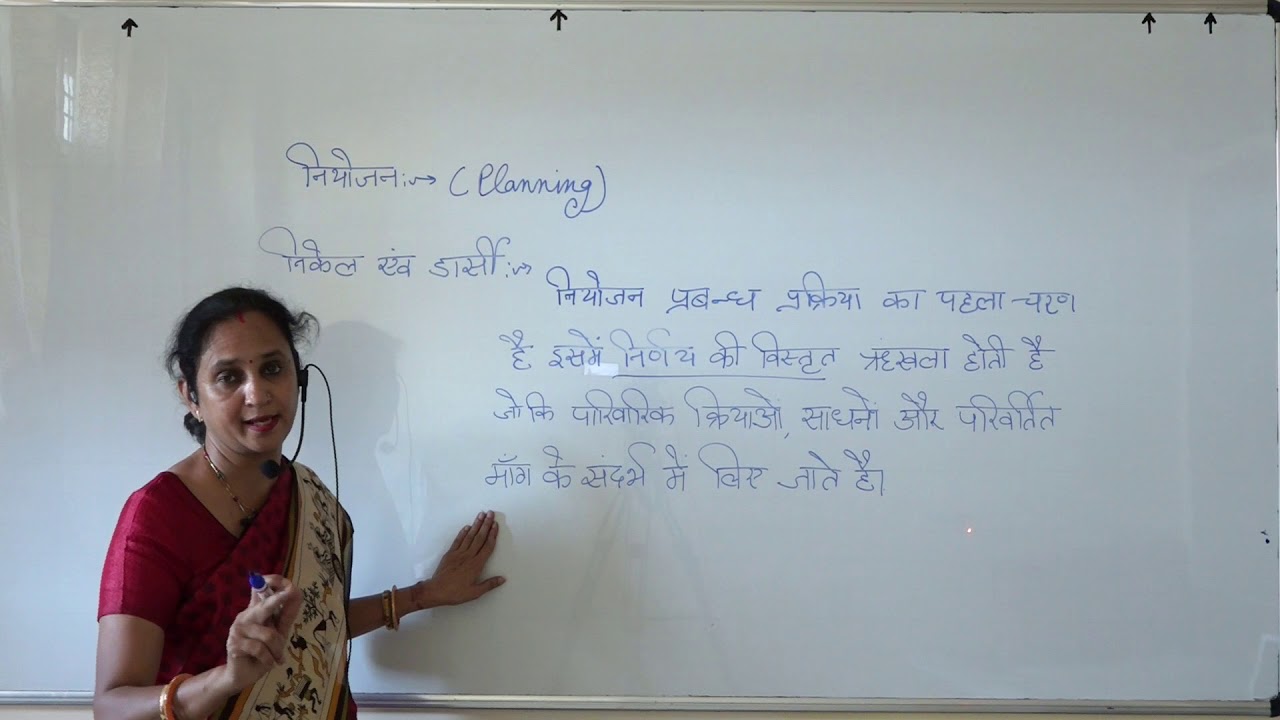 नियोजन:→ (Planning)
निकेल एंव डार्सी:→
नियोजन प्रबन्ध प्रक्रिया का पहला चरण
है इसमें निर्णय की विस्तृत श्रृंखला होती है
जोकि पारिवारिक क्रियाओं, साधनों और परिवर्तित
माँग के संदर्भ में लिए जाते है।